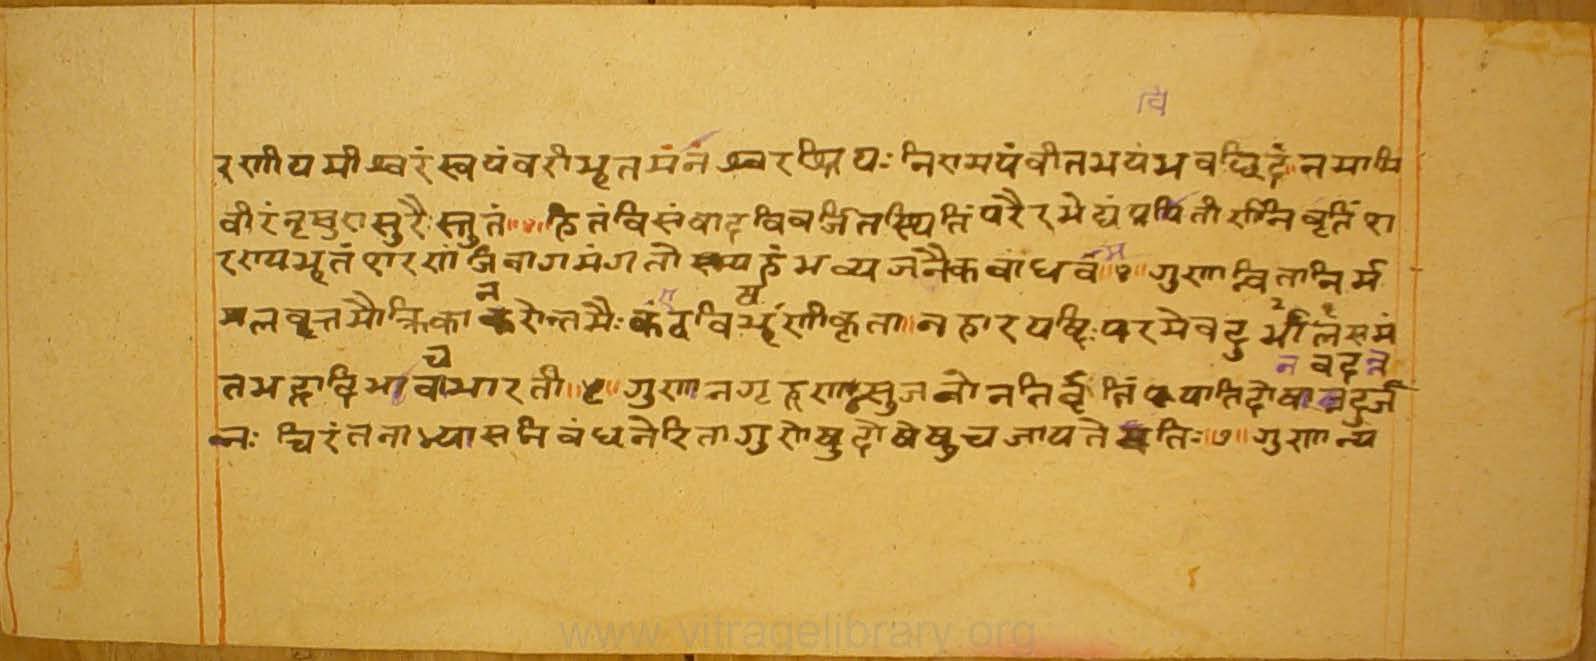 वि
रणीयमीश्वरं स्वयंवरीभूतमनश्वरश्रियः निरामयं वीतभयं भवच्छिदं नमामि
वीरं नृसुरासुरैः स्तुतं ॥ हितं विसंवादविवर्जितस्थितिं परैरमेद्यं प्रवितीर्णनिवृतिं श
रण्यभूतं शरणं जिनागमं गतो स्म्यहं भव्यजनैकबांधवं ॥ गुणान्विता निर्म
न ष
ललवृत्तमौक्तिका करोत्तमैः कंठविभूंणीकृता न हारयष्टिः परमेव दुर्लभा समं
च न वदन्न
तभद्रादिभवा भारती ॥ गुणानगृह्णसुजनो न निर्वृतिं प्रयाति दोषान्नदुर्ज
नः चिरंतनाभ्यासनिबंधनेरिता गुणेषु दोषेषु च जायते मतिः ॥७॥ गुणान्य
www.vitragelibrary.org